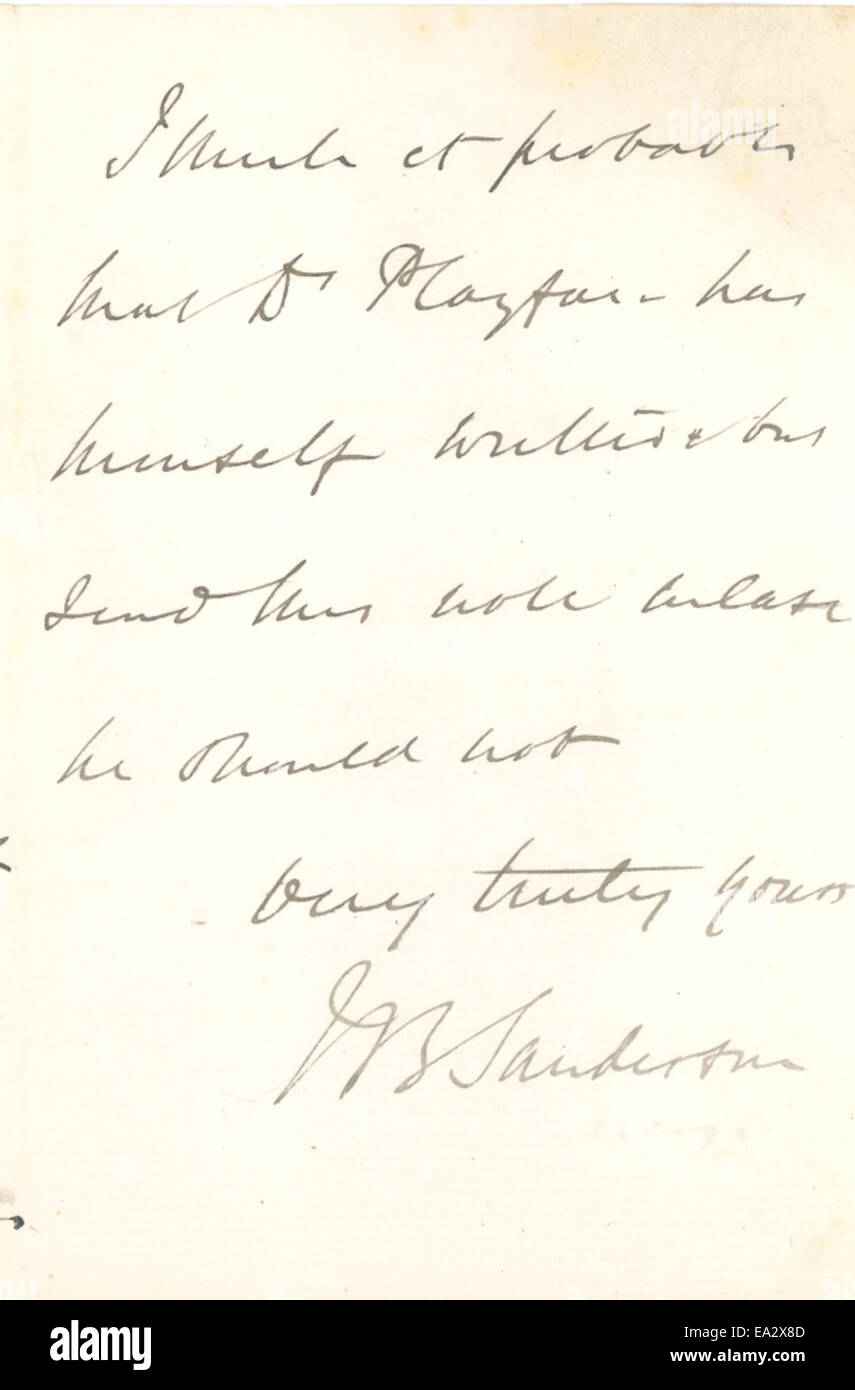 I think it probable
that Dr Playfair has
himself written & but
send this note in case
he should not
Very truly yours
J B Sanderson
alamy
alamy
EA2X8D
www.alamy.com